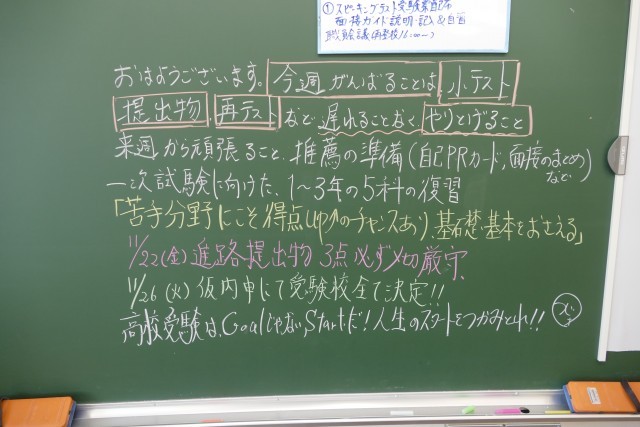 ①スピーキングテスト受験票配布
面接ガイド説明・記入&自習
職員会議(両校16:00〜)
おはようございます。今週がんばることは、小テスト
提出物、再テストなど遅れることなく、やりとげること
来週から頑張ること、推薦の準備(自己PRカード、面接のまとめなど)
一次試験に向けた、1〜3年の5科の復習
「苦手分野にこそ得点up↑のチャンスあり、基礎・基本をおさえる」
11/22(金)進路提出物3点必ず〆切厳守
11/26(火)仮内申にて受験校全て決定!!
高校受験は、Goalじゃない、Startだ!人生のスタートをつかみとれ!!